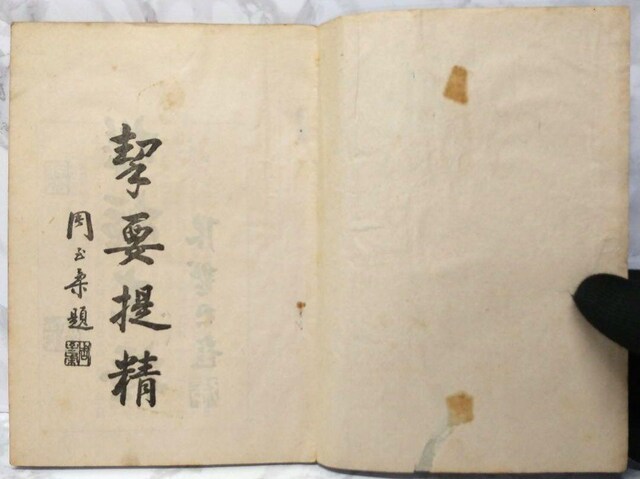 挈要提精
周玉柔題